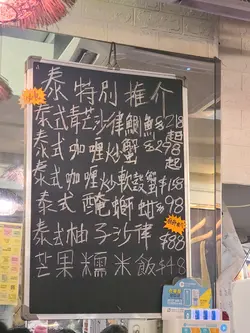 泰特別推介
泰式青芒沙律鯛魚$218起
泰式咖喱炒蟹$298起
泰式咖喱炒軟殼蟹$158
泰式醃蜥蚶$98
泰式柚子沙律$88
芒果糯米飯$48